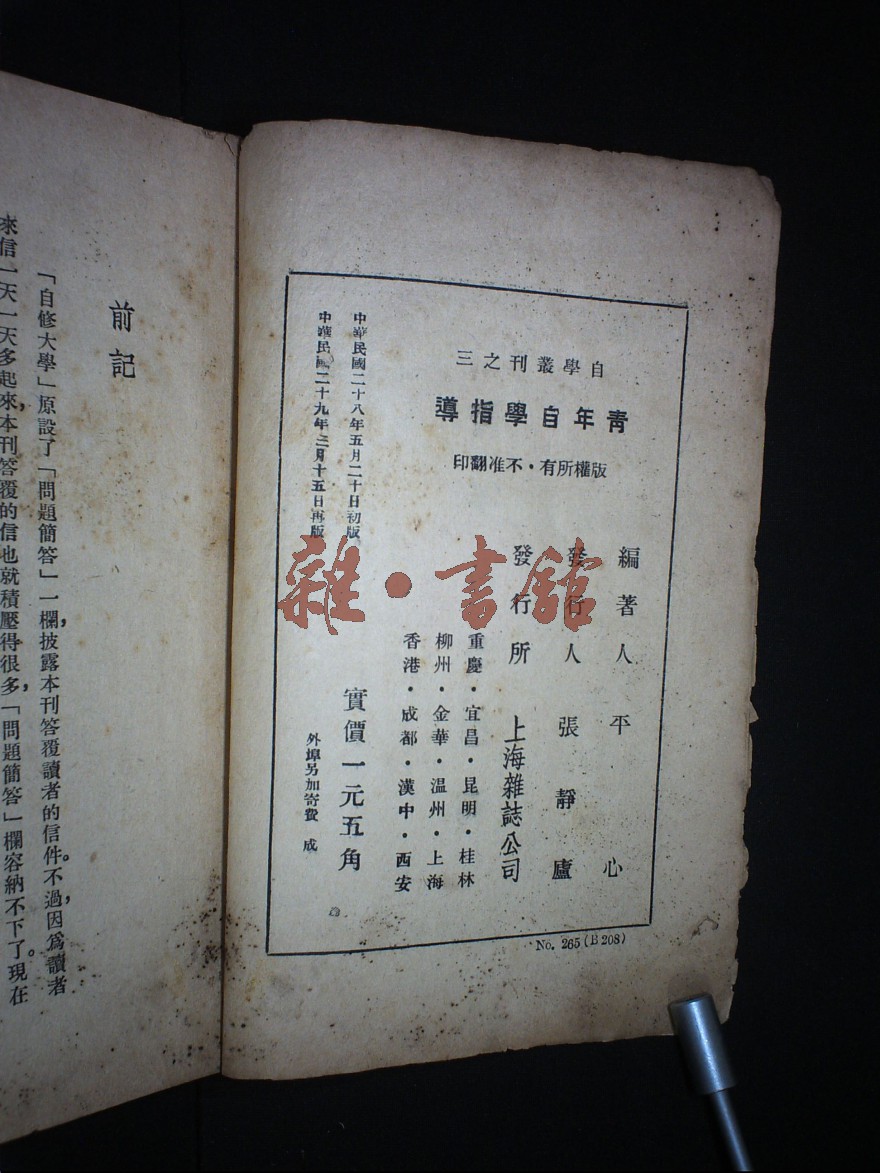 自學叢刊之三
青年自學指導
版權所有·不准翻印
編著人平心
發行人張靜廬
發行所上海雜誌公司
重慶·宜昌·昆明·桂林
柳州·金華·温州·上海
香港·成都·漢中·西安
實價一元五角
外埠另加寄費 成
中華民國二十八年五月二十日初版
中華民國二十九年三月十五日再版
No. 265 (B 208)
雜·書館
前記
「自修大學」原設了「問題簡答」一欄，披露本刊答覆讀者的信件。不過，因爲讀者
來信一天一天多起來，本刊答覆的信也就積壓得很多，「問題簡答」欄容納不下了。現在